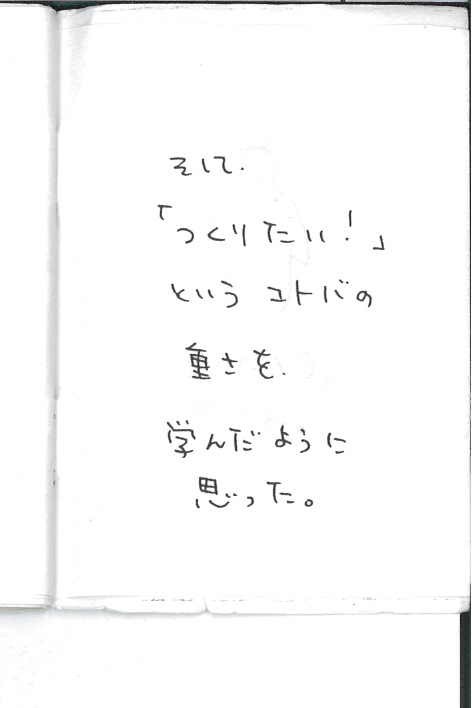 そして.
「つくりたい!」
というコトバの
重さを.
学んだように
思った。